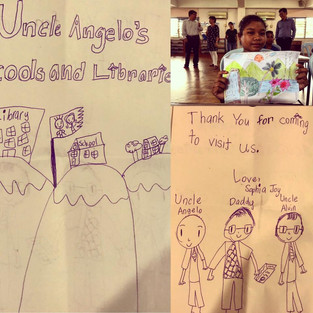 Uncle Angelo's
ools and Librarie
Library
School
Thank You for coming
to visit us.
Love,
Sophia Joy
Uncle
Angelo
Daddy
Uncle
Alvin